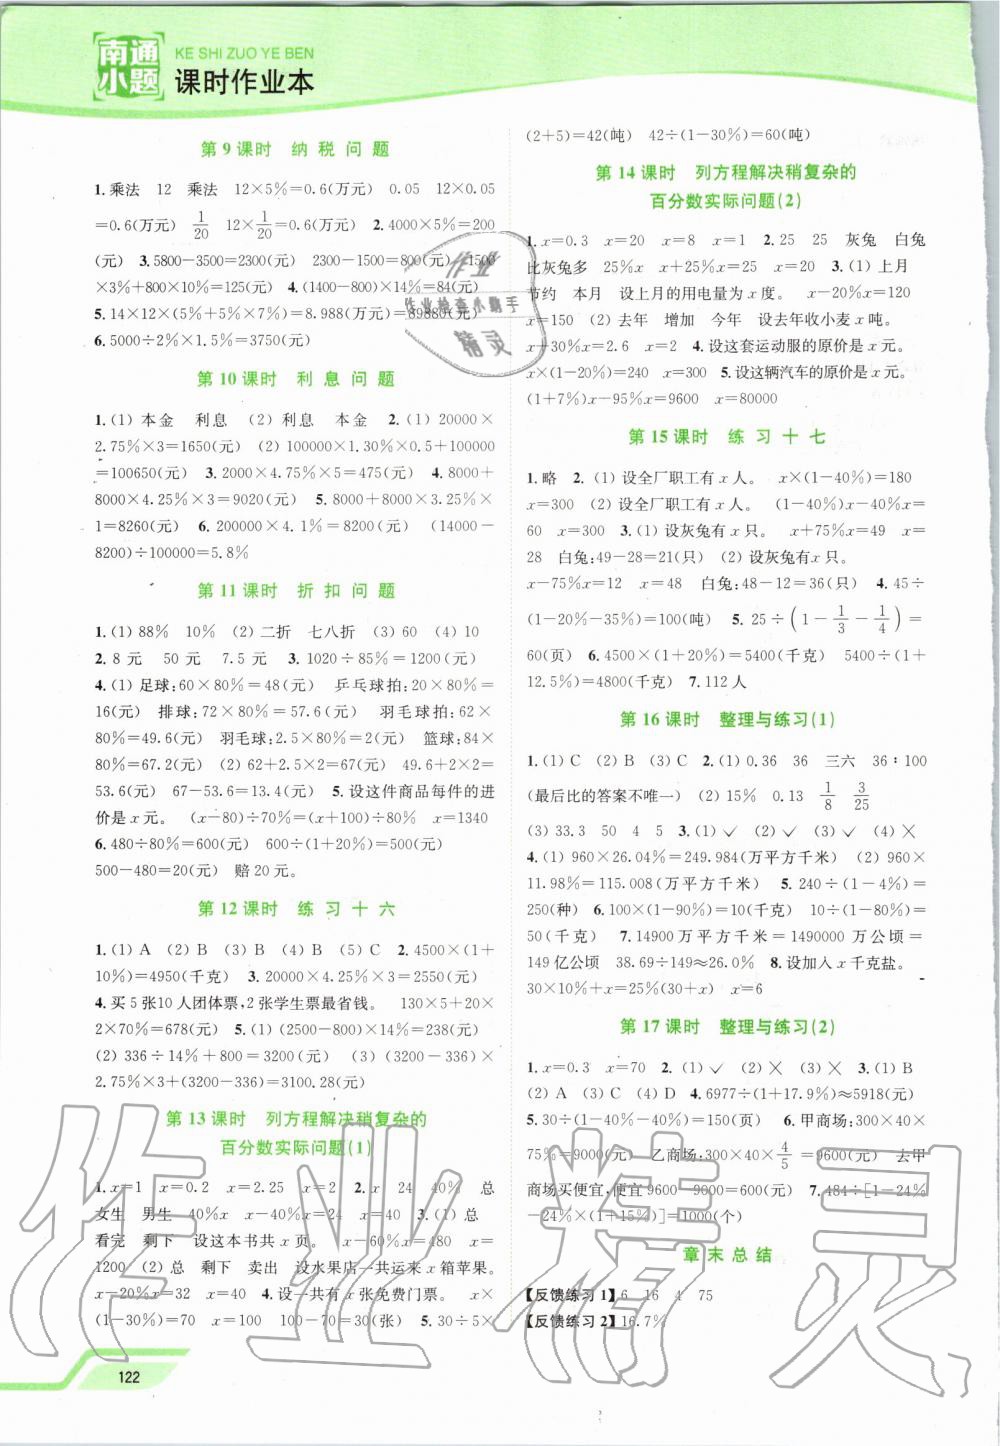 南通小题
KE SHI ZUO YE BEN
课时作业本
第9课时 纳税问题
1.乘法 12 乘法 12×5%=0.6(万元) 0.05 12×0.05
=0.6(万元) 1/20 12×1/20=0.6(万元) 2.4000×5%=200
(元) 3.5800-3500=2300(元) 2300-1500=800(元) 1500
×3%+800×10%=125(元) 4.(1400-800)×14%=84(元)
5.14×12×(5%+5%×7%)=8.988(万元)=89880(元)
6.5000÷2%×1.5%=3750(元)
第10课时 利息问题
1.(1)本金 利息 (2)利息 本金 2.(1)20000×
2.75%×3=1650(元) (2)100000×1.30%×0.5+100000
=100650(元) 3.2000×4.75%×5=475(元) 4.8000+
8000×4.25%×3=9020(元) 5.8000+8000×3.25%×
1=8260(元) 6.200000×4.1%=8200(元) (14000-
8200)÷100000=5.8%
第11课时 折扣问题
1.(1)88% 10% (2)二折 七八折 (3)60 (4)10
2.8元 50元 7.5元 3.1020÷85%=1200(元)
4.(1)足球:60×80%=48(元) 乒乓球拍:20×80%=
16(元) 排球:72×80%=57.6(元) 羽毛球拍:62×
80%=49.6(元) 羽毛球:2.5×80%=2(元) 篮球:84×
80%=67.2(元) (2)62+2.5×2=67(元) 49.6+2×2=
53.6(元) 67-53.6=13.4(元) 5.设这件商品每件的进
价是x元。 (x-80)÷70%=(x+100)÷80% x=1340
6.480÷80%=600(元) 600÷(1+20%)=500(元)
500-480=20(元) 赔20元。
第12课时 练习十六
1.(1)A (2)B (3)B (4)B (5)C 2.4500×(1+
10%)=4950(千克) 3.20000×4.25%×3=2550(元)
4.买5张10人团体票,2张学生票最省钱。 130×5+20×
2×70%=678(元) 5.(1)(2500-800)×14%=238(元)
(2)336÷14%+800=3200(元) (3)(3200-336)×
2.75%×3+(3200-336)=3100.28(元)
第13课时 列方程解决稍复杂的
百分数实际问题(1)
1.x=1 x=0.2 x=2.25 x=2 2.x 24 40% 总
女生 男生 40%x x-40%x=24 x=40 3.(1)总
看完 剩下 设这本书共x页。 x-40%x=480 x=
1200 (2)总 剩下 卖出 设水果店一共运来x箱苹果。
x-20%x=32 x=40 4.设一共有x张免费门票。 x×
(1-30%)=70 x=100 100-70=30(张) 5.30÷5×
(2+5)=42(吨) 42÷(1-30%)=60(吨)
第14课时 列方程解决稍复杂的
百分数实际问题(2)
1.x=0.3 x=20 x=8 x=1 2.25 25 灰兔 白兔
比灰兔多 25%x x+25%x=25 x=20 3.(1)上月
节约 本月 设上月的用电量为x度。 x-20%x=120
x=150 (2)去年 增加 今年 设去年收小麦x吨。
x+30%x=2.6 x=2 4.设这套运动服的原价是x元。
x×(1-20%)=240 x=300 5.设这辆汽车的原价是x元。
(1+7%)x-95%x=9600 x=80000
第15课时 练习十七
1.略 2.(1)设全厂职工有x人。 x×(1-40%)=180
x=300 (2)设全厂职工有x人。 (1-40%)x-40%x=
60 x=300 3.(1)设灰兔有x只。 x+75%x=49 x=
28 白兔:49-28=21(只) (2)设灰兔有x只。
x-75%x=12 x=48 白兔:48-12=36(只) 4.45÷
(1-20%-35%)=100(吨) 5.25÷(1-1/3-1/4)=
60(页) 6.4500×(1+20%)=5400(千克) 5400÷(1+
12.5%)=4800(千克) 7.112人
第16课时 整理与练习(1)
1.(1)C (2)B (3)C 2.(1)0.36 36 三六 36∶100
(最后比的答案不唯一) (2)15% 0.13 1/8 3/25
(3)33.3 50 4 5 3.(1)✓ (2)✓ (3)✓ (4)×
4.(1)960×26.04%=249.984(万平方千米) (2)960×
11.98%=115.008(万平方千米) 5.240÷(1-4%)=
250(种) 6.100×(1-90%)=10(千克) 10÷(1-80%)=
50(千克) 7.14900万平方千米=1490000万公顷=
149亿公顷 38.69÷149≈26.0% 8.设加入x千克盐。
30×10%+x=25%(30+x) x=6
第17课时 整理与练习(2)
1.x=0.3 x=70 2.(1)✓ (2)× (3)× 3.(1)B
(2)A (3)D (4)C 4.6977÷(1+17.9%)≈5918(元)
5.30÷(1-40%-40%)=150(页) 6.甲商场:300×40×
75%=9000(元) 乙商场:300×40×4/5=9600(元) 去甲
商场买便宜,便宜9600-9000=600(元) 7.484÷[1-24%
-24%×(1+15%)]=1000(个)
章末总结
【反馈练习1】6 16 4 75
【反馈练习2】16.7%
122
作业
作业检查小助手
精灵
作业精灵